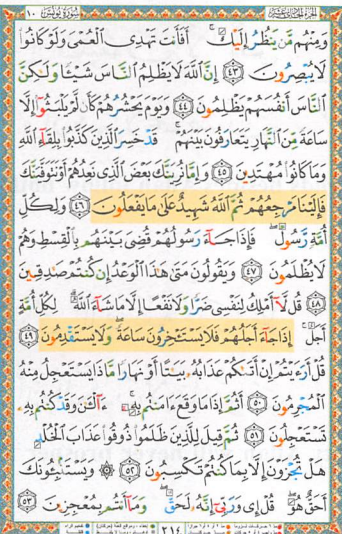 سُورَةُ يُونُسَ ١٠
وَمِنْهُم مَّن يَنظُرُ إِلَيْكَ ۚ أَفَأَنتَ تَهْدِى الْعُمْىَ وَلَوْ كَانُوا
لَا يُبْصِرُونَ ٤٣ إِنَّ اللَّهَ لَا يَظْلِمُ النَّاسَ شَيْئًا وَلَٰكِنَّ
النَّاسَ أَنفُسَهُمْ يَظْلِمُونَ ٤٤ وَيَوْمَ يَحْشُرُهُمْ كَأَن لَّمْ يَلْبَثُوا إِلَّا
سَاعَةً مِّنَ النَّهَارِ يَتَعَارَفُونَ بَيْنَهُمْ ۚ قَدْ خَسِرَ الَّذِينَ كَذَّبُوا بِلِقَاءِ اللَّهِ
وَمَا كَانُوا مُهْتَدِينَ ٤٥ وَإِمَّا نُرِيَنَّكَ بَعْضَ الَّذِى نَعِدُهُمْ أَوْ نَتَوَفَّيَنَّكَ
فَإِلَيْنَا مَرْجِعُهُمْ ثُمَّ اللَّهُ شَهِيدٌ عَلَىٰ مَا يَفْعَلُونَ ٤٦ وَلِكُلِّ
أُمَّةٍ رَّسُولٌ ۖ فَإِذَا جَاءَ رَسُولُهُمْ قُضِىَ بَيْنَهُم بِالْقِسْطِ وَهُمْ
لَا يُظْلَمُونَ ٤٧ وَيَقُولُونَ مَتَىٰ هَٰذَا الْوَعْدُ إِن كُنتُمْ صَادِقِينَ
٤٨ قُل لَّا أَمْلِكُ لِنَفْسِى ضَرًّا وَلَا نَفْعًا إِلَّا مَا شَاءَ اللَّهُ ۗ لِكُلِّ أُمَّةٍ
أَجَلٌ ۚ إِذَا جَاءَ أَجَلُهُمْ فَلَا يَسْتَـْٔخِرُونَ سَاعَةً ۖ وَلَا يَسْتَقْدِمُونَ ٤٩
قُلْ أَرَءَيْتُمْ إِنْ أَتَىٰكُمْ عَذَابُهُۥ بَيَٰتًا أَوْ نَهَارًا مَّاذَا يَسْتَعْجِلُ مِنْهُ
الْمُجْرِمُونَ ٥٠ أَثُمَّ إِذَا مَا وَقَعَ ءَامَنتُم بِهِۦٓ ۚ ءَآلْـَٰٔنَ وَقَدْ كُنتُم بِهِۦ
تَسْتَعْجِلُونَ ٥١ ثُمَّ قِيلَ لِلَّذِينَ ظَلَمُوا ذُوقُوا عَذَابَ الْخُلْدِ
هَلْ تُجْزَوْنَ إِلَّا بِمَا كُنتُمْ تَكْسِبُونَ ٥٢ ۞ وَيَسْتَنۢبِـُٔونَكَ
أَحَقٌّ هُوَ ۖ قُلْ إِى وَرَبِّىٓ إِنَّهُۥ لَحَقٌّ ۖ وَمَآ أَنتُم بِمُعْجِزِينَ ٥٣
٢١٤